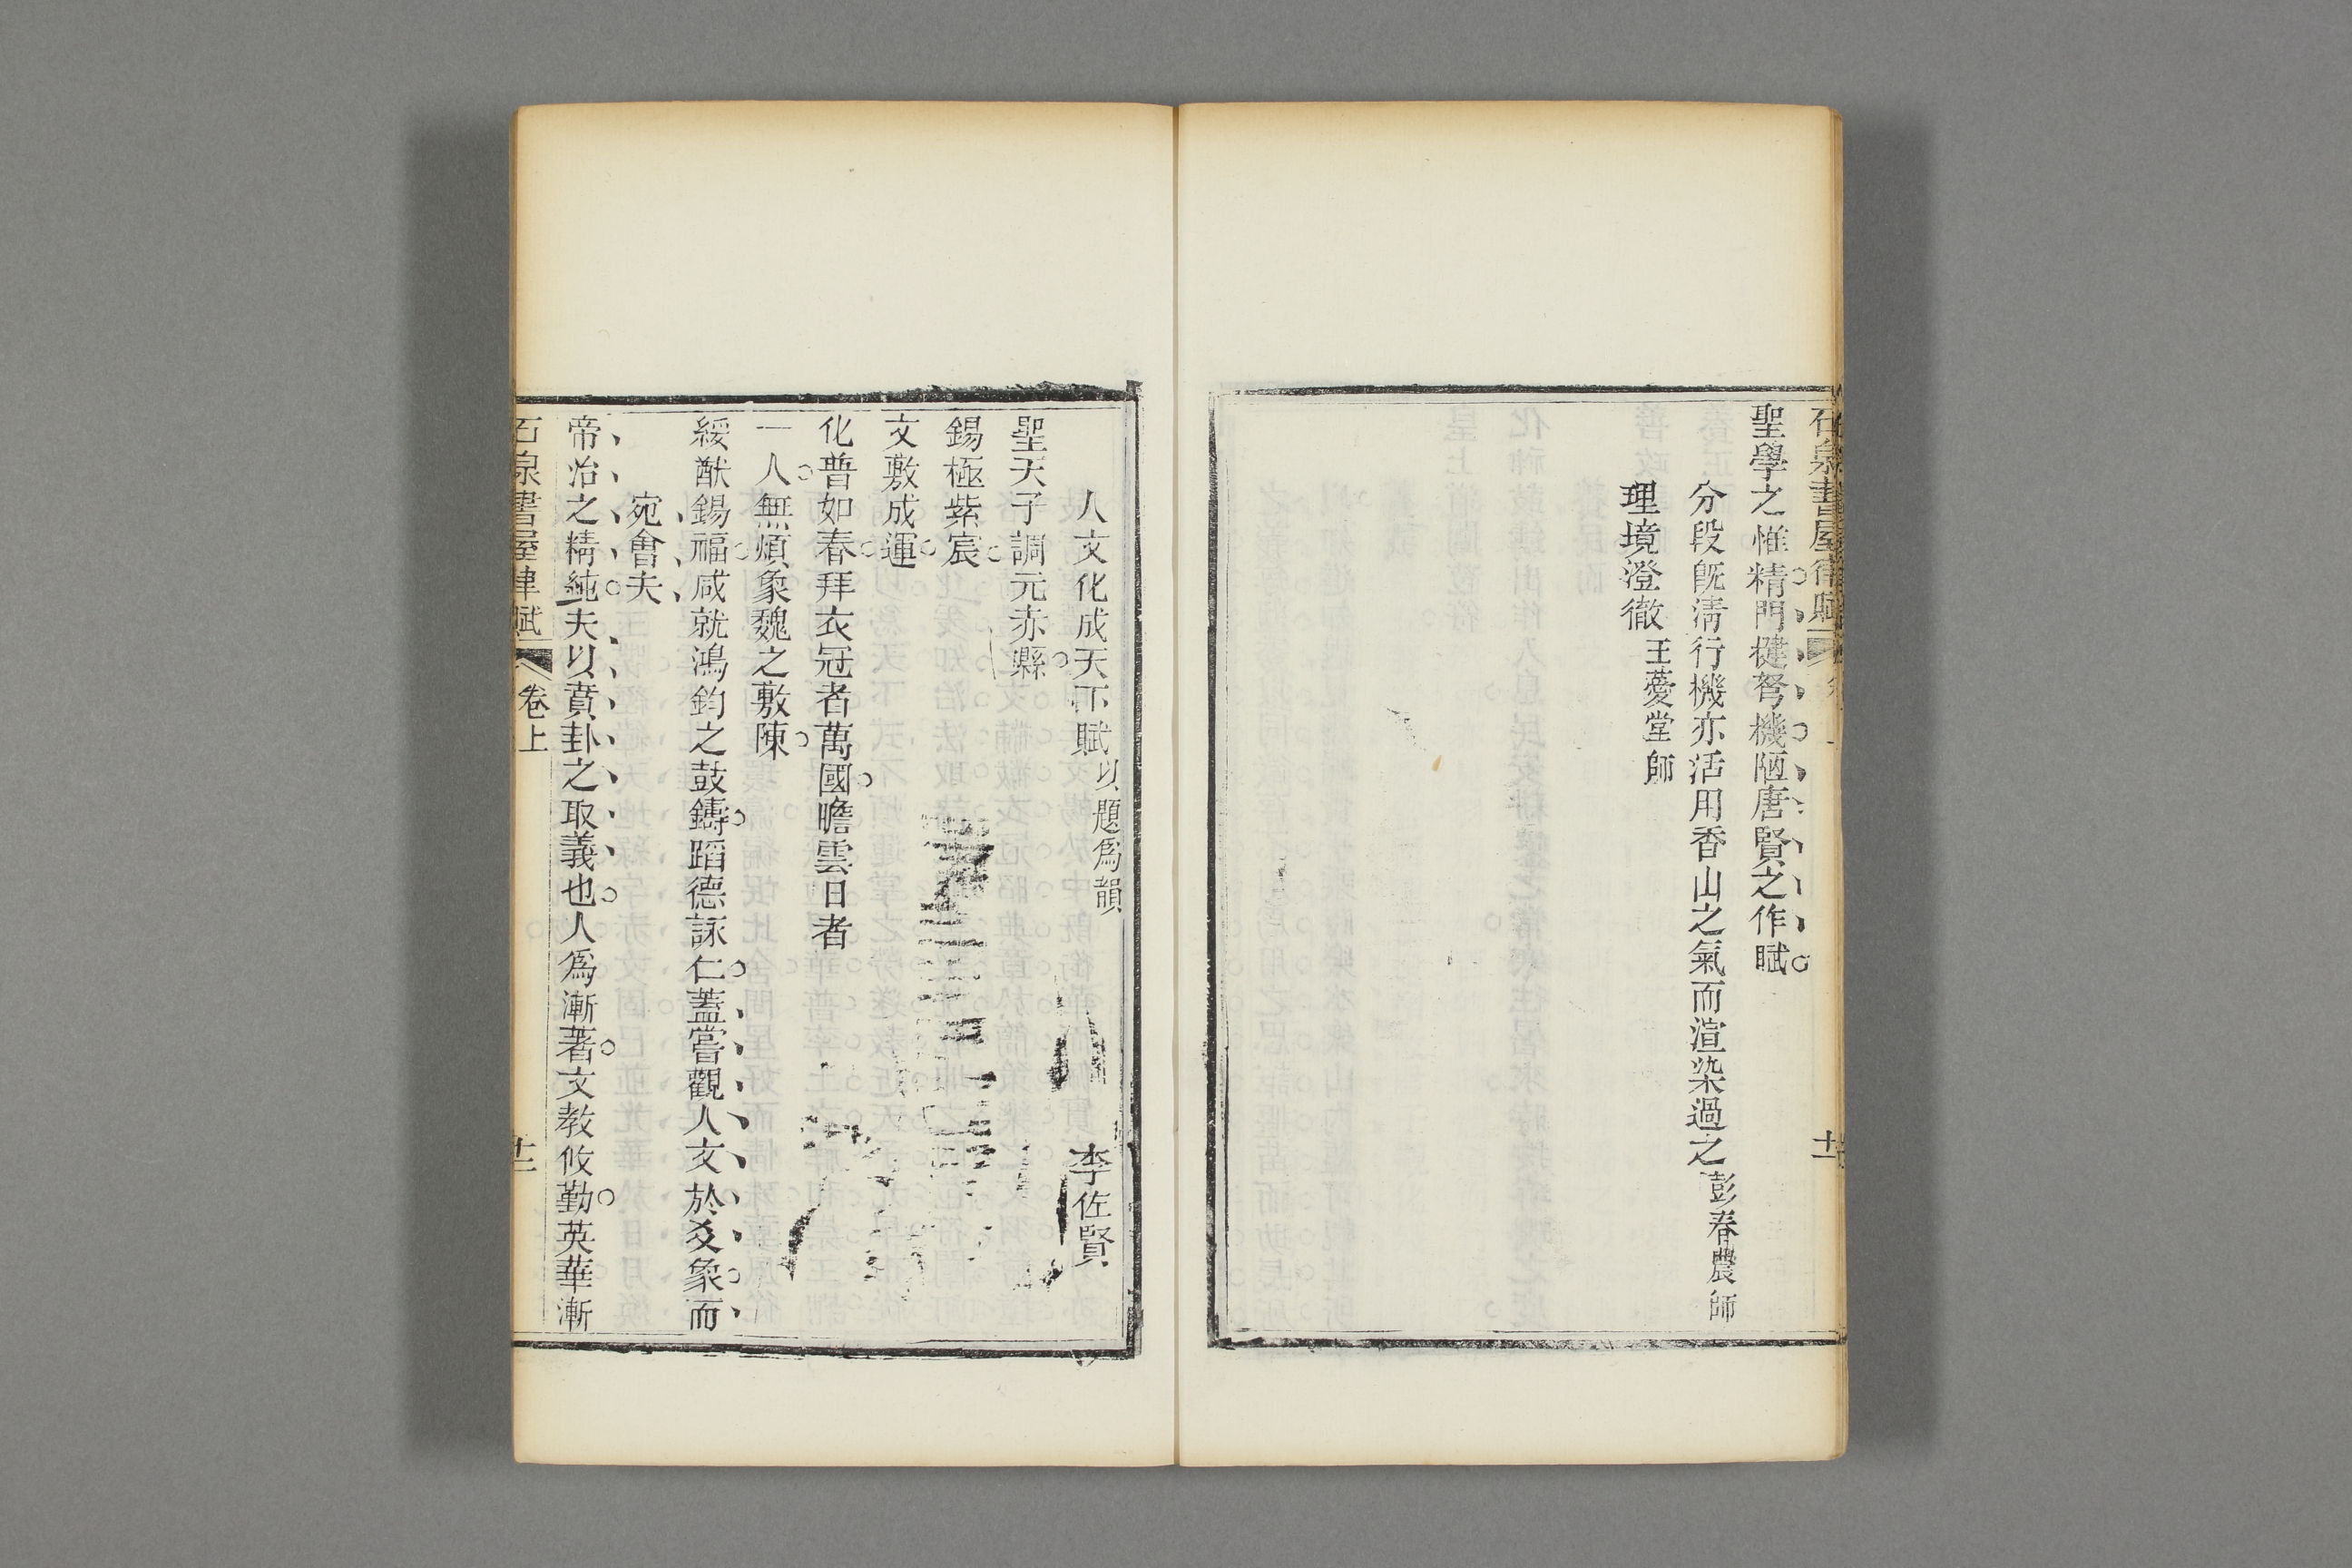 石泉書屋律賦
十一
聖學之惟精門楗弩機陋唐賢之作賦
分段旣清行機亦活用香山之氣而渲染過之彭春農師
理境澄徹王薆堂師
人文化成天下賦以題爲韻 李佐賢
聖天子調元赤縣
錫極紫宸
文敷成運
化普如春拜衣冠者萬國瞻雲日者
一人無煩象魏之敷陳
綏猷錫福咸就鴻鈞之鼓鑄蹈德詠仁蓋嘗觀人文於爻象而
宛會夫
帝治之精純夫以賁卦之取義也人爲漸著文教攸勤英華漸
石泉書屋律賦 卷上 十二